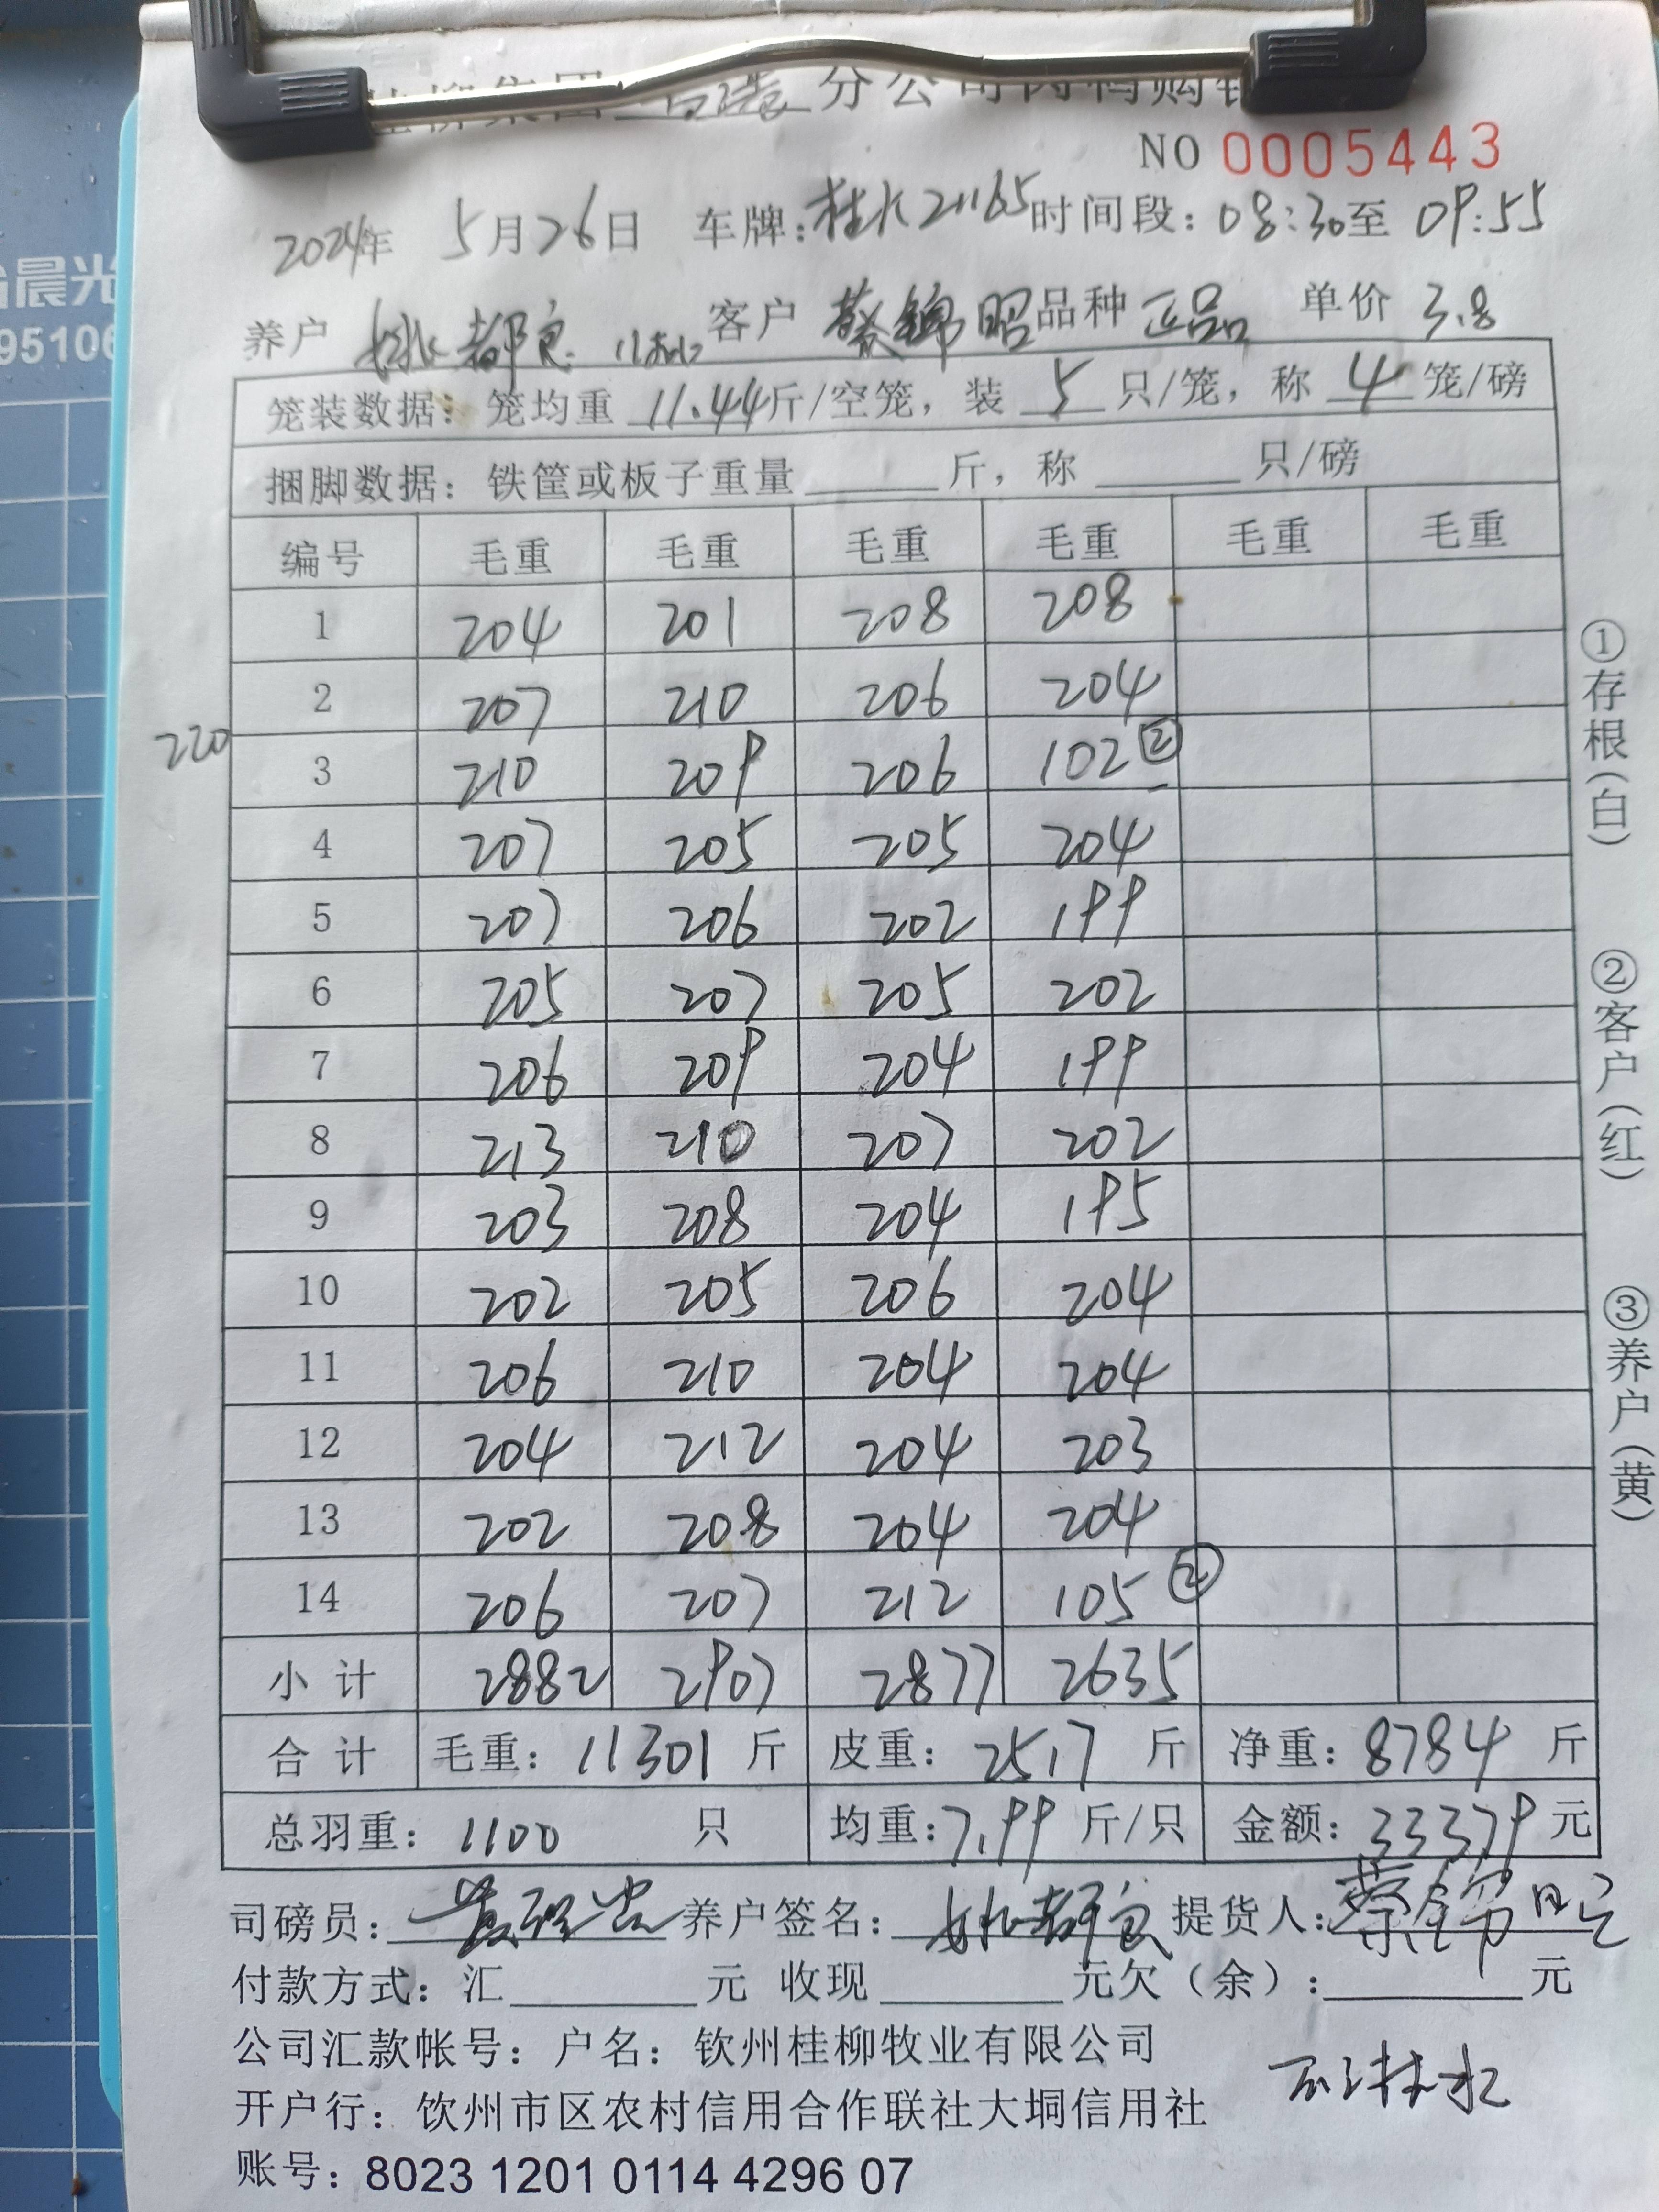 分公司肉鸭购销
NO 0005443
2024年 5月26日 车牌:桂K21165 时间段:08:30至 09:55
养户 姚都良 客户 蔡锦昭 品种 正品 单价 3.8
笼装数据:笼均重 11.44斤/空笼,装 5 只/笼,称 4 笼/磅
捆脚数据:铁筐或板子重量 斤,称 只/磅
编号 毛重 毛重 毛重 毛重 毛重 毛重
1 204 201 208 208
2 207 210 206 204
220
3 210 209 206 102②
4 207 205 205 204
5 207 206 202 199
6 205 207 205 202
7 206 209 204 199
8 213 210 207 202
9 203 208 204 195
10 202 205 206 204
11 206 210 204 204
12 204 212 204 203
13 202 208 204 204
14 206 207 212 105②
小计 2882 2907 2877 2635
合计 毛重:11301 斤 皮重:2517 斤 净重:8784 斤
总羽重:1100 只 均重:7.99 斤/只 金额:33379 元
司磅员: 养户签名:姚都良 提货人:蔡锦昭
付款方式:汇 元 收现 元欠(余): 元
公司汇款帐号:户名:钦州桂柳牧业有限公司
开户行:钦州市区农村信用合作联社大垌信用社
账号:8023 1201 0114 4296 07
①存根(白) ②客户(红) ③养户(黄)
晨光
95106